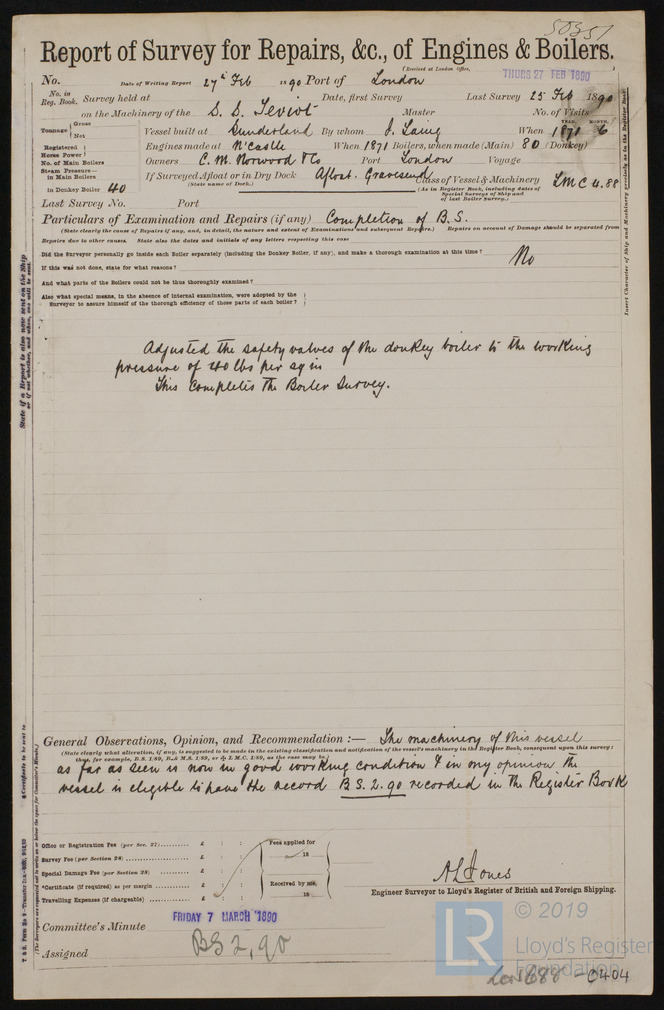 50351
Report of Survey for Repairs, &c., of Engines & Boilers.
(Received at London Office, THURS 27 FEB 1890)
No. Date of Writing Report 27th Feb 1890 Port of London
No. in Reg. Book. Survey held at Date, first Survey Last Survey 25 Feb 1890
on the Machinery of the S. S. Teviot Master No. of Visits
Tonnage Gross Net Vessel built at Sunderland By whom J. Laing When YEAR. 1871 MONTH. 6
Registered Horse Power Engines made at N'Castle When 1871 Boilers, when made (Main) 80 (Donkey)
No. of Main Boilers Owners C. M. Norwood & Co Port London Voyage
Steam Pressure— in Main Boilers If Surveyed Afloat or in Dry Dock Afloat. Gravesend Class of Vessel & Machinery LMC 4.88
(State name of Dock.) (As in Register Book, including dates of Special Surveys of Ship and of last Boiler Survey.)
in Donkey Boiler 40
Last Survey No. Port
Particulars of Examination and Repairs (if any) Completion of B. S.
(State clearly the cause of Repairs if any, and, in detail, the nature and extent of Examinations and subsequent Repairs.) Repairs on account of Damage should be separated from
Repairs due to other causes. State also the dates and initials of any letters respecting this case
Did the Surveyor personally go inside each Boiler separately (including the Donkey Boiler, if any), and make a thorough examination at this time? No
If this was not done, state for what reasons?
And what parts of the Boilers could not be thoroughly examined?
Also what special means, in the absence of internal examination, were adopted by the
Surveyor to assure himself of the thorough efficiency of those parts of each boiler?
Adjusted the safety valves of the donkey boiler to the working
pressure of 40 lbs per sq in
This completes the Boiler Survey.
General Observations, Opinion, and Recommendation :— The machinery of this vessel
(State clearly what alteration, if any, is suggested to be made in the existing classification and notification of the vessel's machinery in the Register Book, consequent upon this survey;
thus, for example, B.S. 1/89, B.& M.S. 1/89, or L.M.C. 1/89, as the case may be)
as far as seen is now in good working condition & in my opinion the
vessel is eligible to have the record B.S. 2.90 recorded in the Register Book
Office or Registration Fee (per Sec. 27) £ : : Fees applied for
Survey Fee (per Section 28) £ : : 18
Special Damage Fee (per Section 28) £ : :
*Certificate (if required) as per margin £ : : Received by me,
Travelling Expenses (if chargeable) £ : : 18
A L Jones
Engineer Surveyor to Lloyd's Register of British and Foreign Shipping.
Committee's Minute FRIDAY 7 MARCH 1890
Assigned BS 2,90
LR © 2019
Lloyd's Register
Foundation
Lon688-0404
State if a Report is also now sent on the Ship
or if not whether, and when, one will be sent.
Insert Character of Ship and Machinery precisely as in the Register Book.
*Certificate to be sent to
(The Surveyors are requested not to write on or below the space for Committee's Minute.)